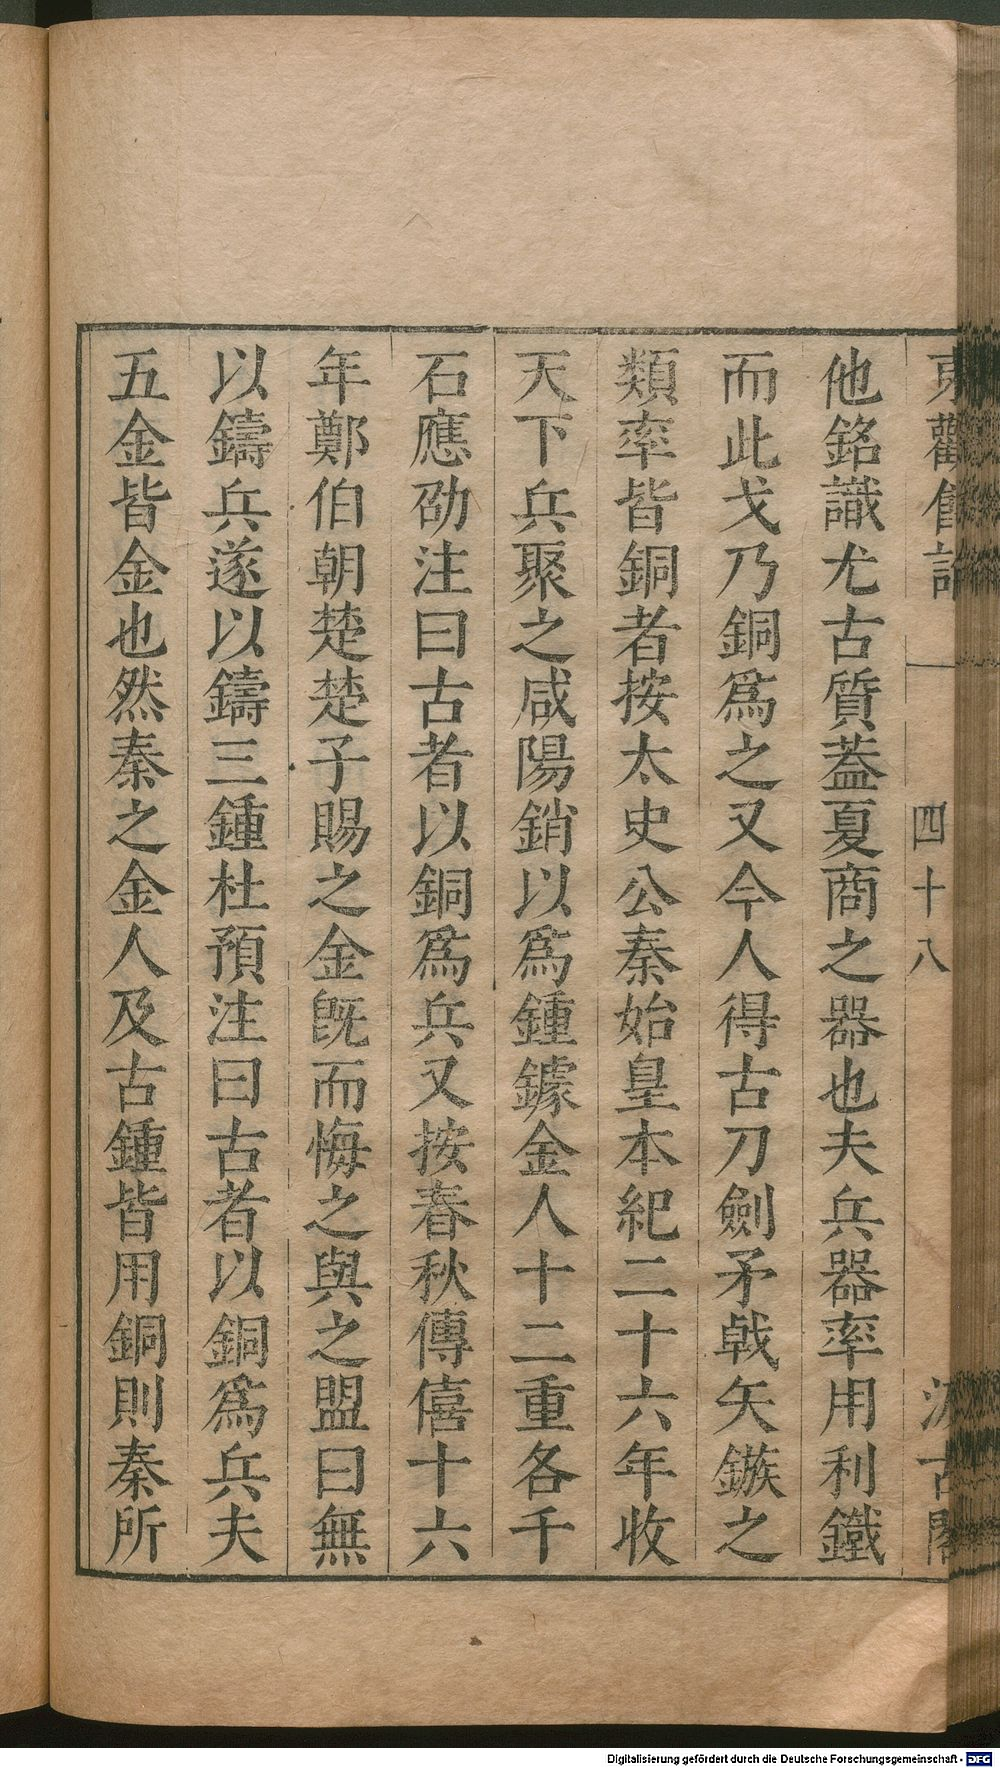 東觀餘論 四十八 汲古閣
他銘識尤古質葢夏商之器也夫兵器率用利鐵
而此戈乃銅爲之又今人得古刀劍矛戟矢鏃之
類率皆銅者按太史公秦始皇本紀二十六年收
天下兵聚之咸陽銷以爲鍾鐻金人十二重各千
石應劭注曰古者以銅爲兵又按春秋傳僖十六
年鄭伯朝楚楚子賜之金旣而悔之與之盟曰無
以鑄兵遂以鑄三鍾杜預注曰古者以銅爲兵夫
五金皆金也然秦之金人及古鍾皆用銅則秦所
Digitalisierung gefördert durch die Deutsche Forschungsgemeinschaft - DFG